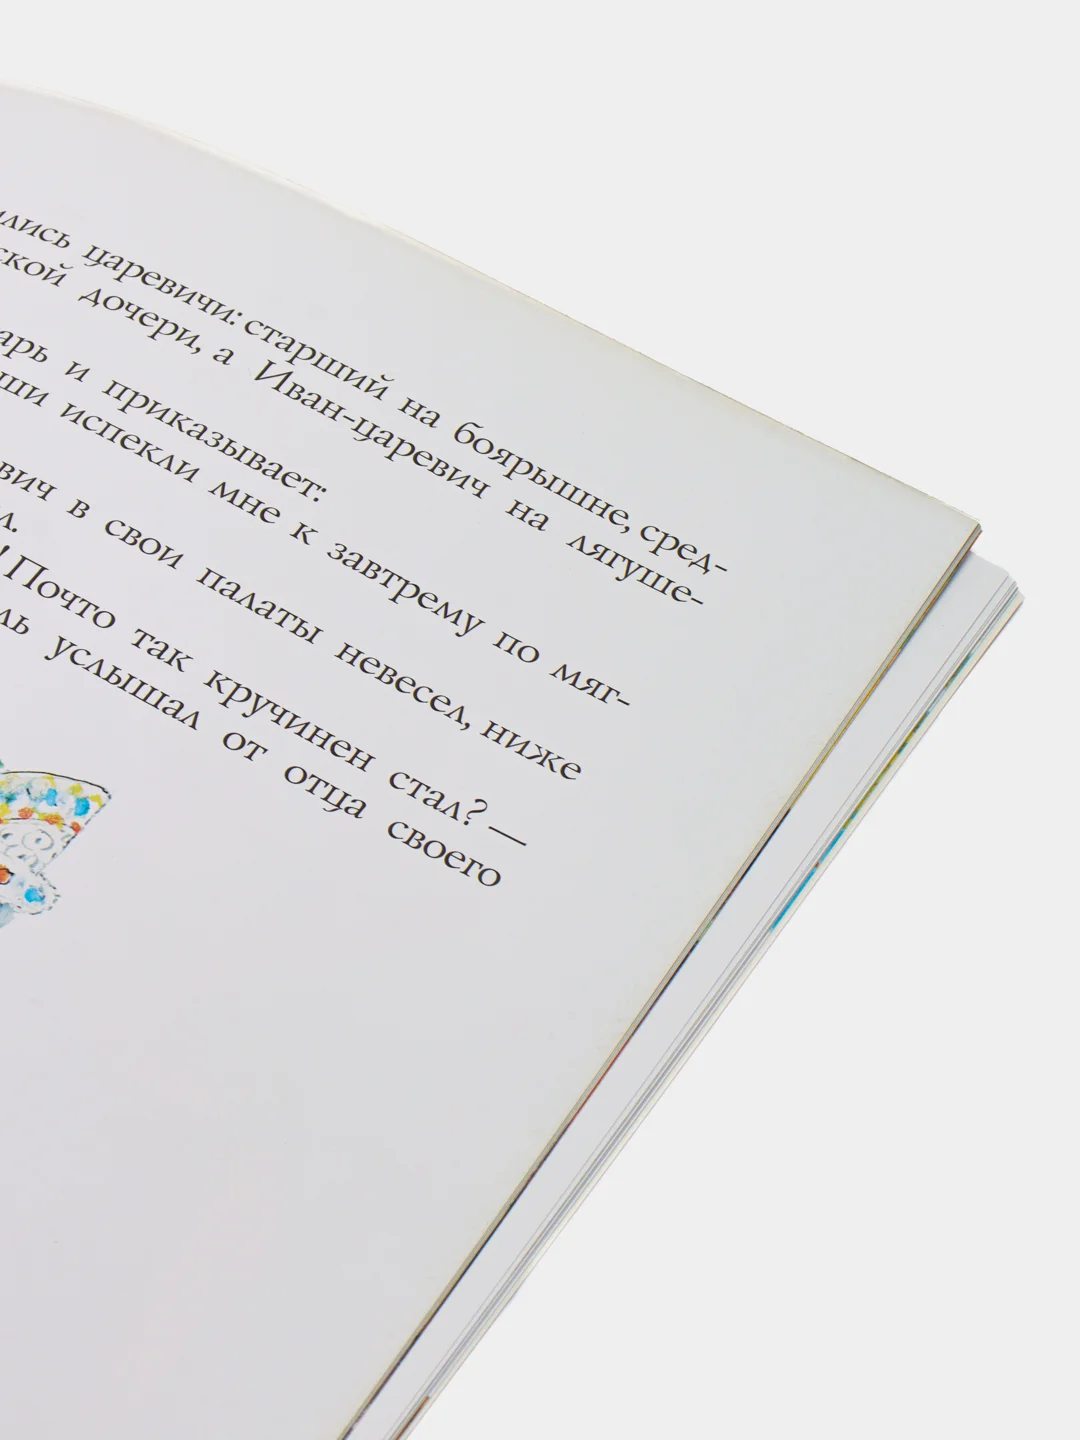 лись царевичи: старший на боярышне, сред-
ской дочери, а Иван-царевич на лягуше-
арь и приказывает:
ши испекли мне к завтрему по мяг-
вич в свои палаты невесел, ниже
л.
! Почто так кручинен стал? —
ль услышал от отца своего